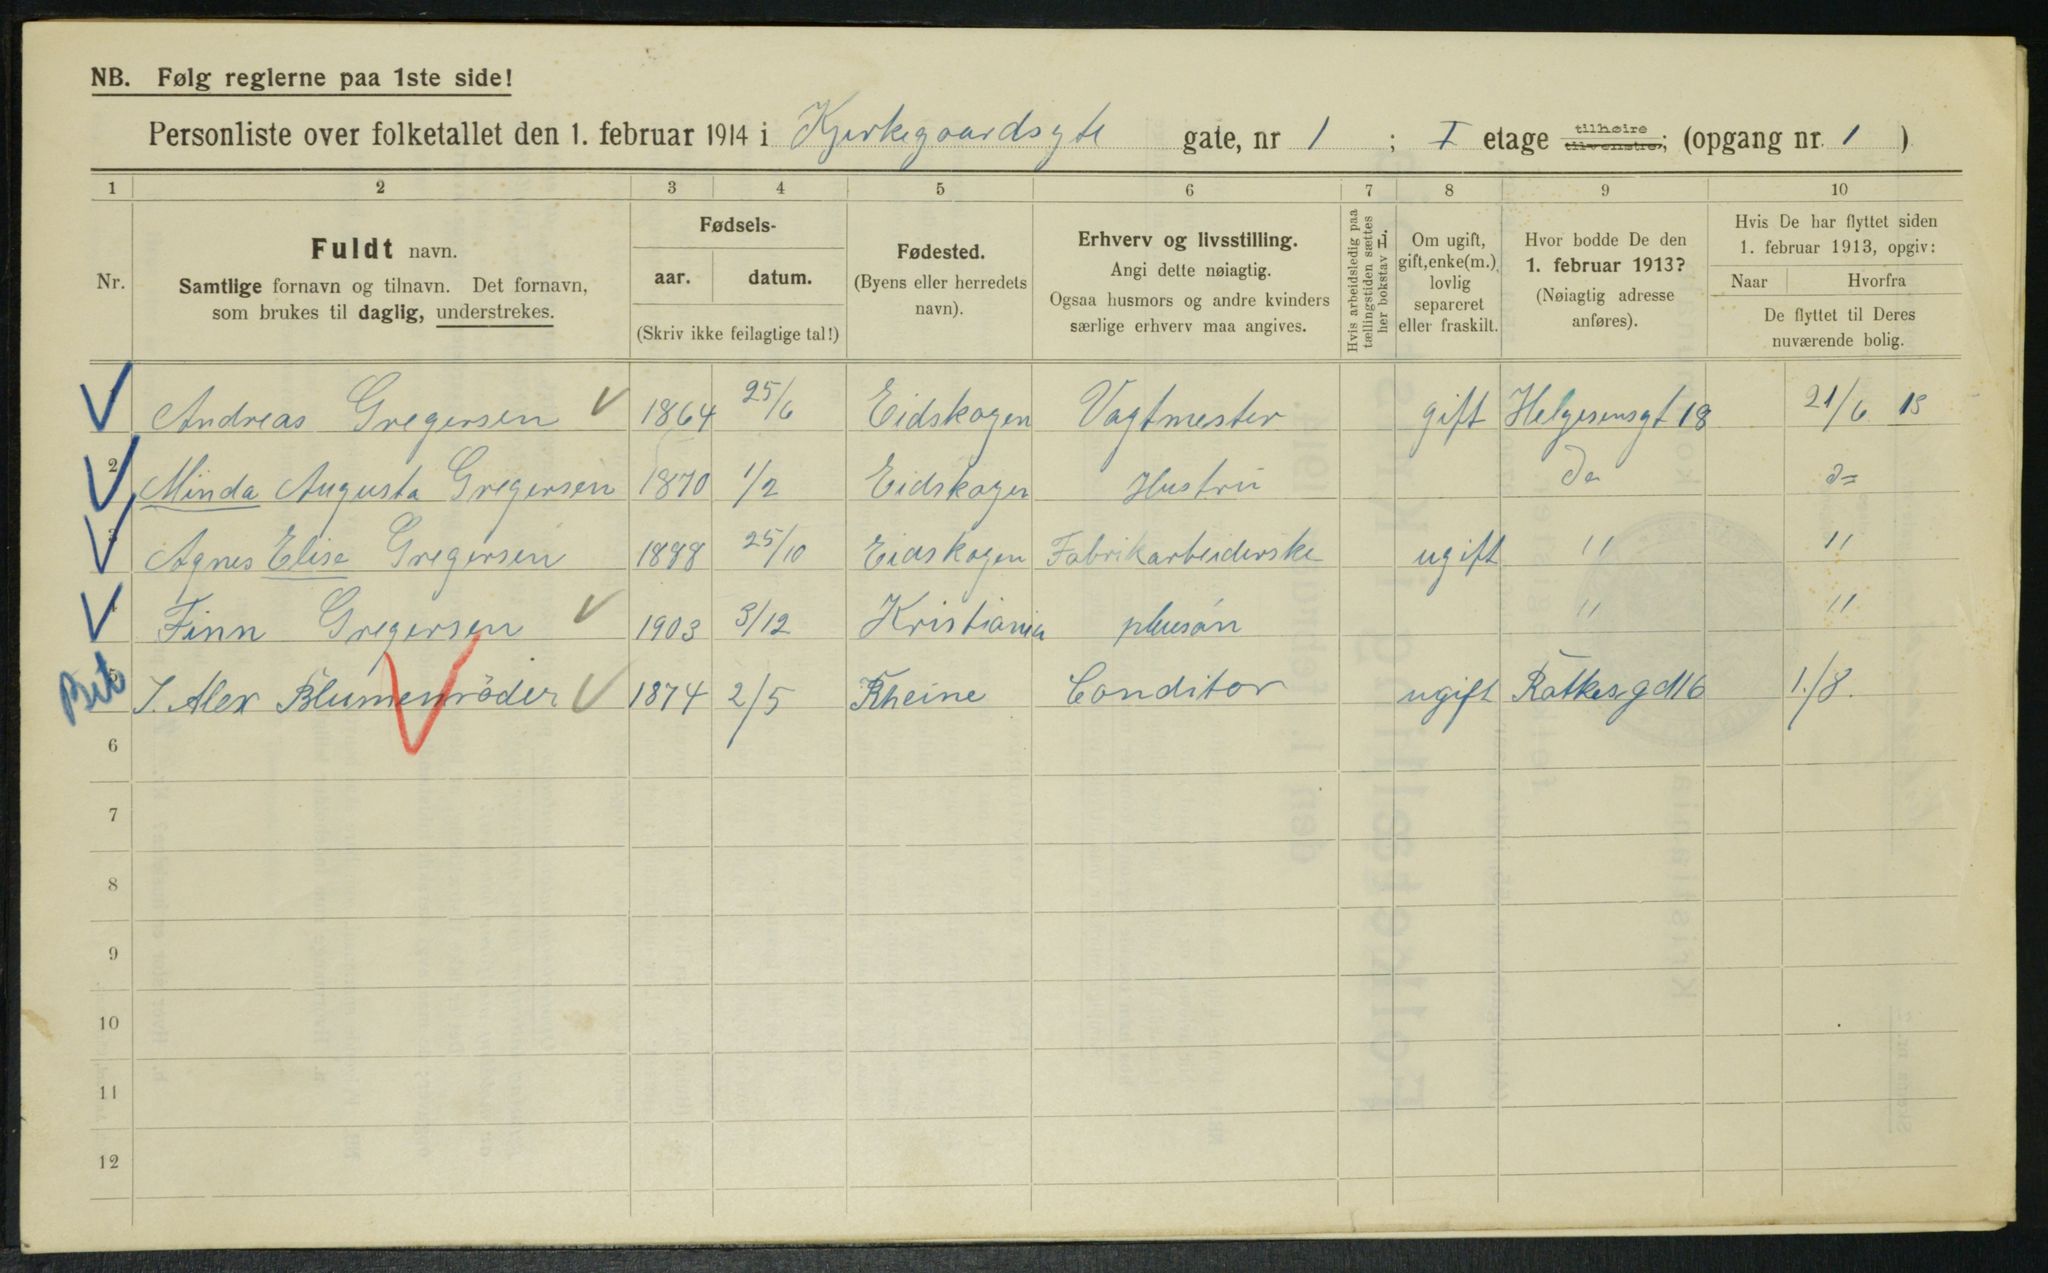 NB. Følg reglerne paa 1ste side!
Personliste over folketallet den 1. februar 1914 i Kjirkegaardsgte gate, nr 1 ; I etage tilhøire tilvenstre; (opgang nr. 1 )
1 2 3 4 5 6 7 8 9 10
Nr.
Fuldt navn.
Samtlige fornavn og tilnavn. Det fornavn,
som brukes til daglig, understrekes.
Fødsels-
aar. datum.
(Skriv ikke feilagtige tal!)
Fødested.
(Byens eller herredets
navn).
Erhverv og livsstilling.
Angi dette nøiagtig.
Ogsaa husmors og andre kvinders
særlige erhverv maa angives.
Hvis arbeidsledig paa
tællingstiden sættes
her bokstav L.
Om ugift,
gift, enke(m.),
lovlig
separeret
eller fraskilt.
Hvor bodde De den
1. februar 1913?
(Nøiagtig adresse
anføres).
Hvis De har flyttet siden
1. februar 1913, opgiv:
Naar Hvorfra
De flyttet til Deres
nuværende bolig.
Andreas Gregersen 1864 25/6 Eidskogen Vagtmester gift Helgesensgt 18 21/6 13
2 Minda Augusta Gregersen 1870 1/2 Eidskogen Hustru do do
3 Agnes Elise Gregersen 1888 25/10 Eidskogen Fabrikarbeiderske ugift " "
4 Finn Gregersen 1903 3/12 Kristiania " "
5 J. Alex Blumenröder 1874 2/5 Rheine Conditor ugift 1./8.
6
7
8
9
10
11
12